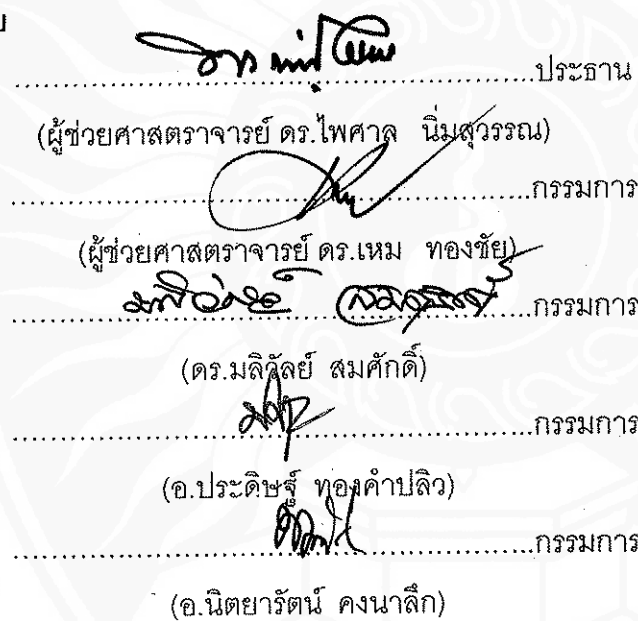 ประธาน
(ผู้ช่วยศาสตราจารย์ ดร.ไพศาล นิ่มสุวรรณ)
กรรมการ
(ผู้ช่วยศาสตราจารย์ ดร.เหม ทองชัย)
กรรมการ
(ดร.มลิวัลย์ สมศักดิ์)
กรรมการ
(อ.ประดิษฐ์ ทองคำปลิว)
กรรมการ
(อ.นิตยารัตน์ คงนาลึก)